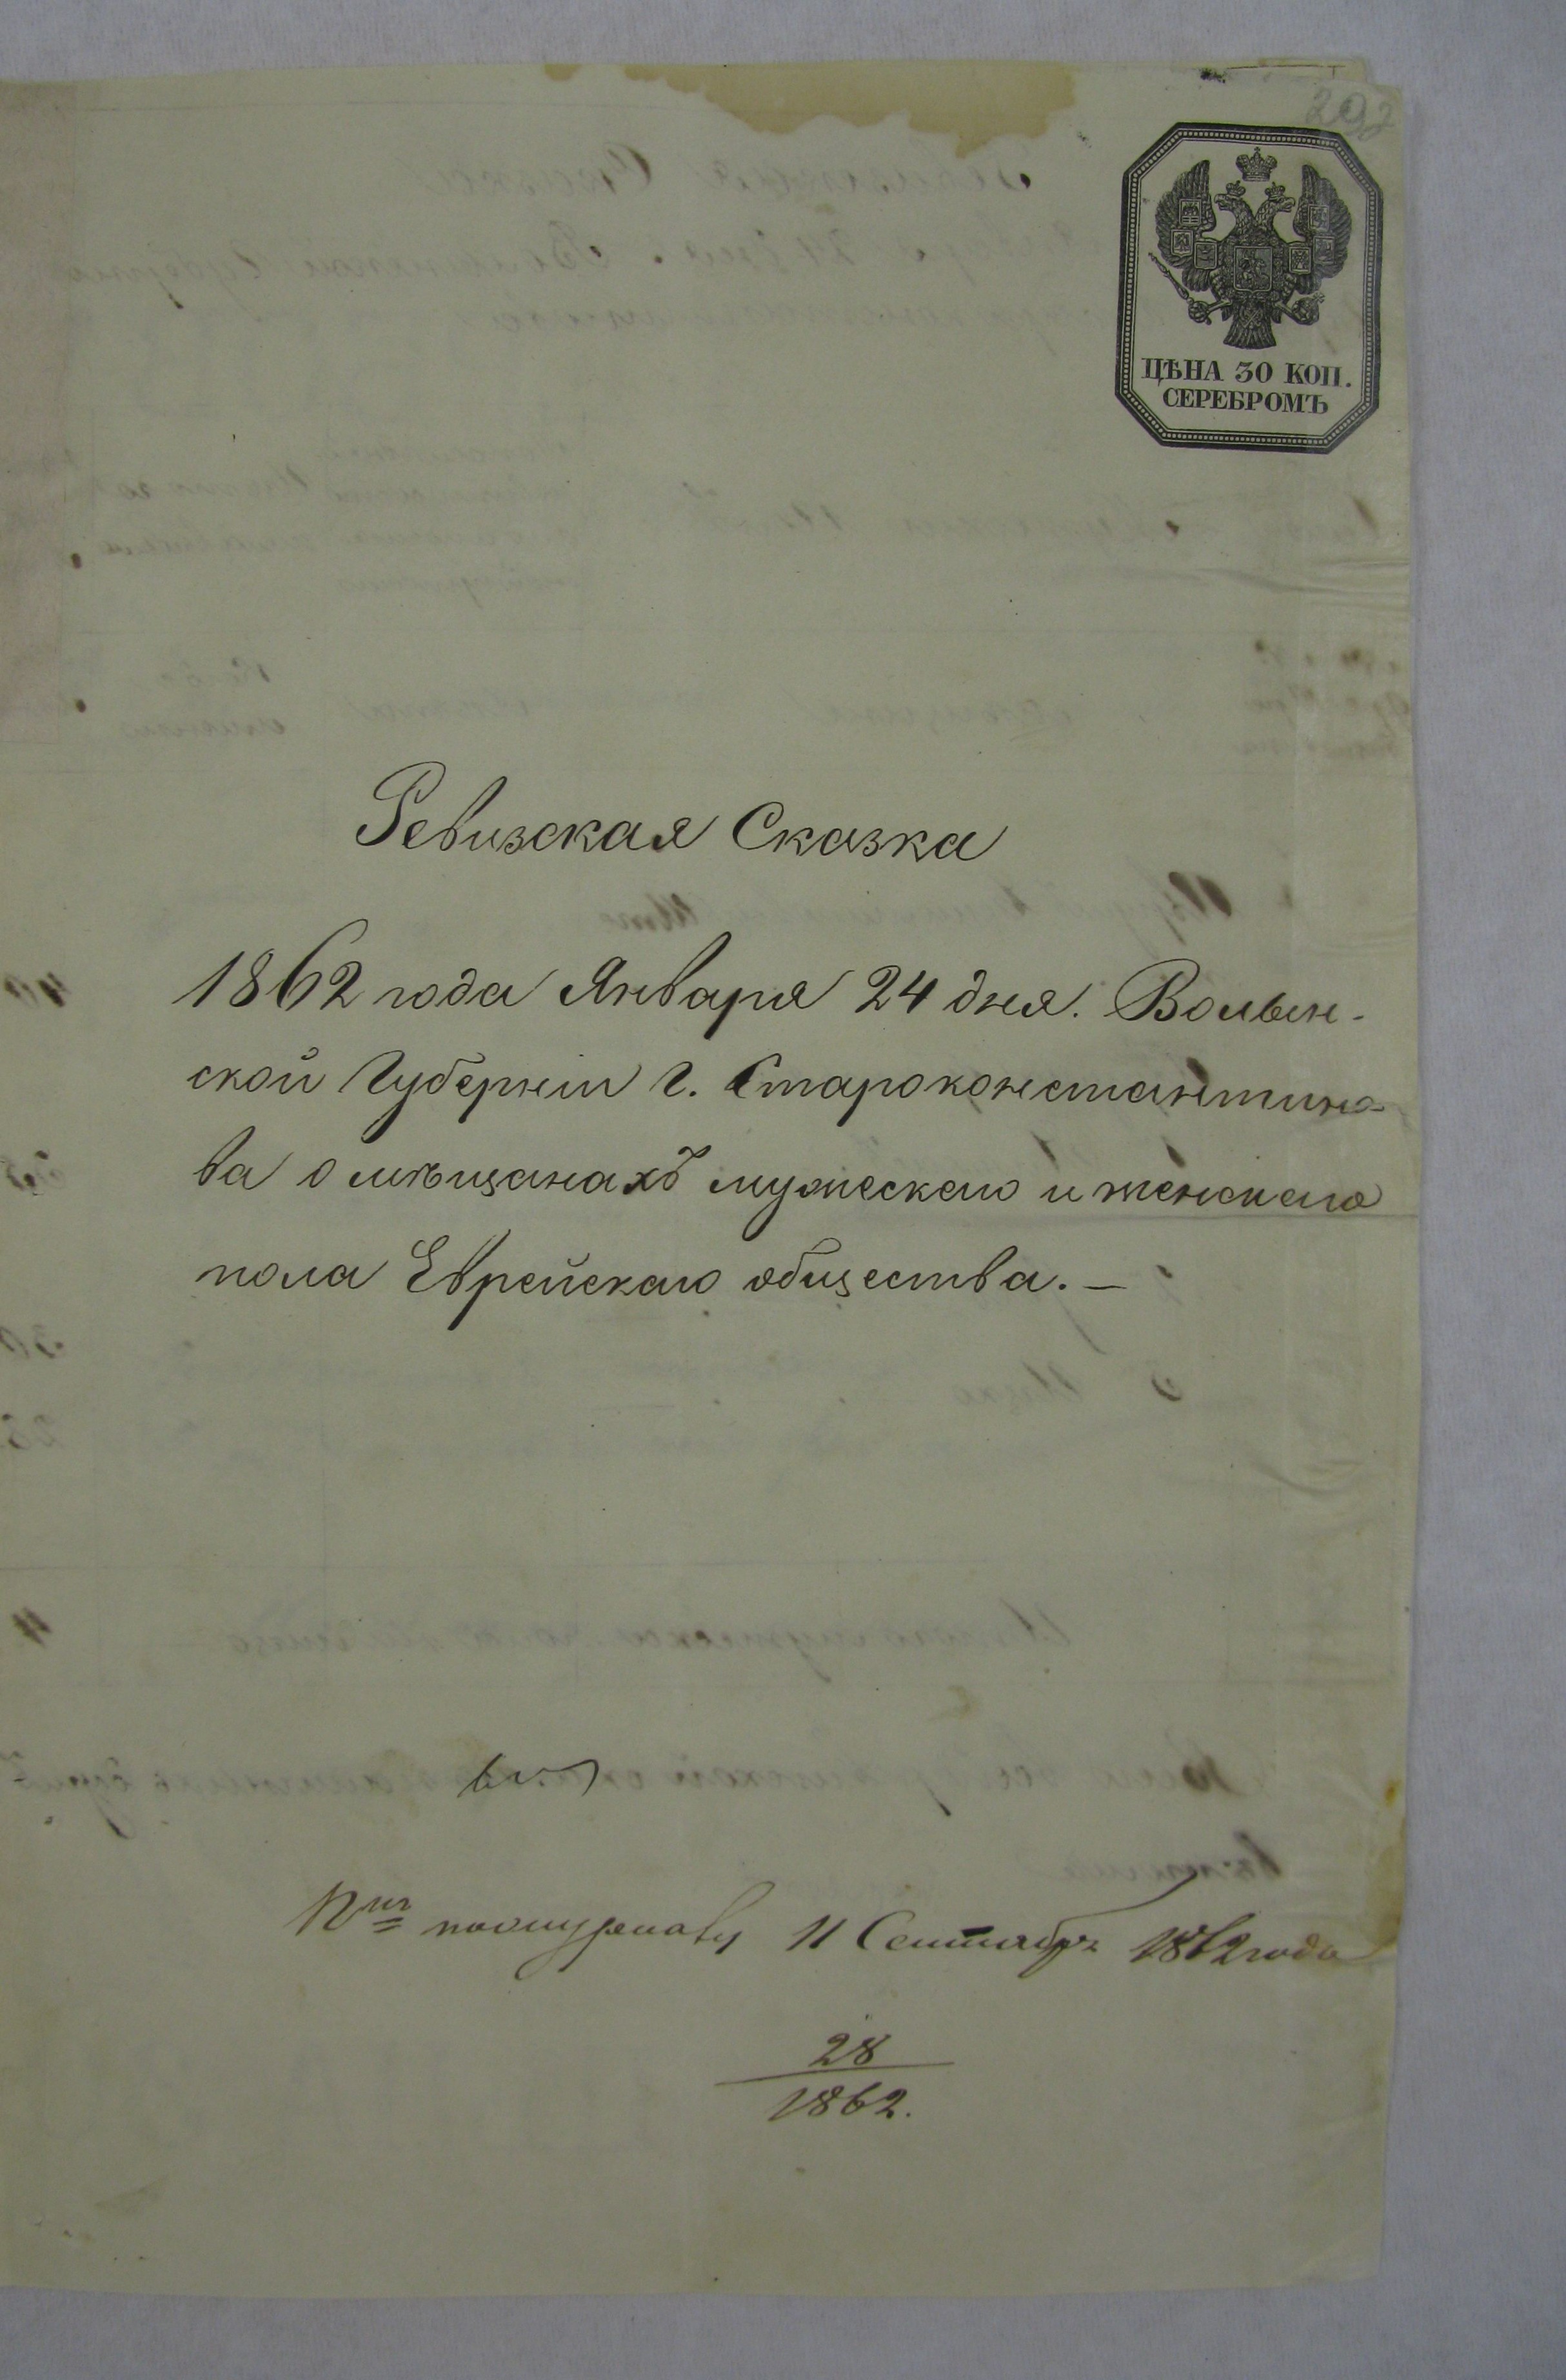 292
ЦѢНА 30 КОП.
СЕРЕБРОМЪ
Ревизская Сказка
1862 года Января 24 дня. Волын-
ской Губерніи г. Староконстантино-
ва о мѣщанахъ мужескаго и женскаго
пола Еврейскаго общества. —
11 Сентября 1862 года
28
1862.